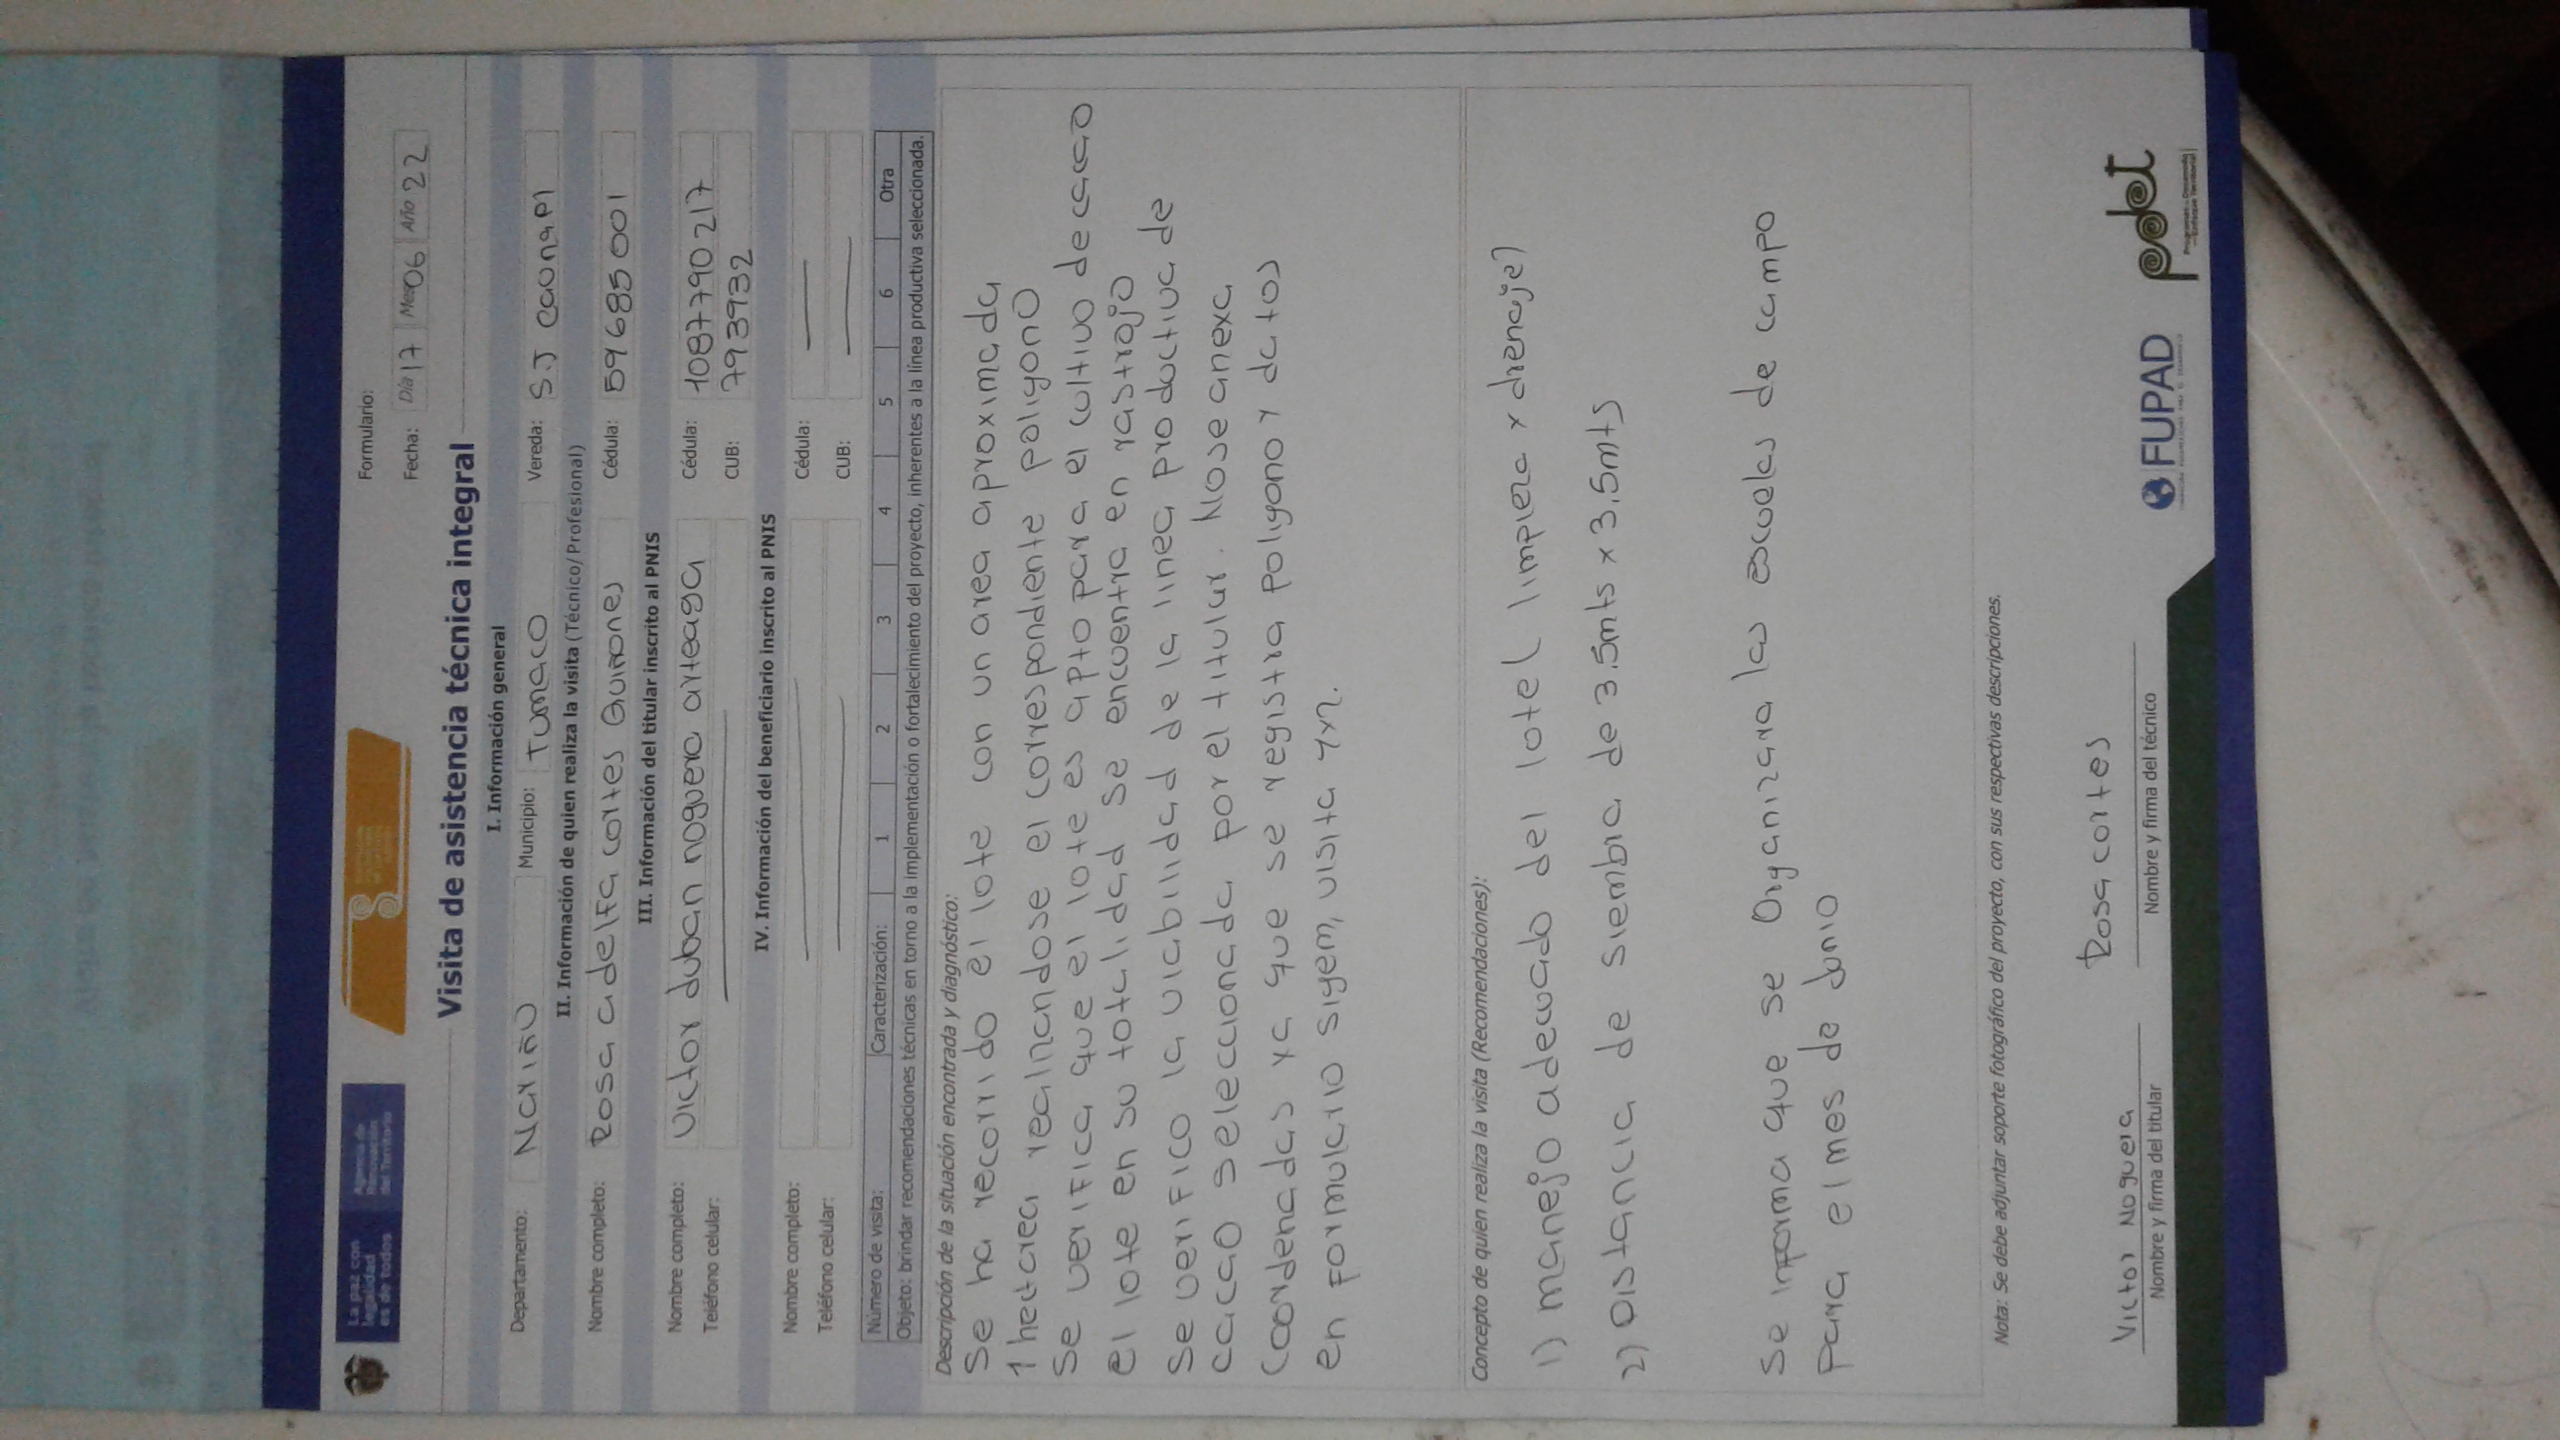 La paz con
legalidad
es de todos
Agencia de
Renovación
del Territorio
Formulario:
Fecha: Día 17 Mes 06 Año 22
Visita de asistencia técnica integral
I. Información general
Departamento: Nariño Municipio: Tumaco Vereda: S.J Caunapi
II. Información de quien realiza la visita (Técnico/Profesional)
Nombre completo: Rosa adelfa cortes Quiñones Cédula: 59685001
III. Información del titular inscrito al PNIS
Nombre completo: Victor duban noguera arteaga Cédula: 1087790217
Teléfono celular: CUB: 793932
IV. Información del beneficiario inscrito al PNIS
Nombre completo: Cédula:
Teléfono celular: CUB:
Número de visita: Caracterización: 1 2 3 4 5 6 Otra
Objeto: brindar recomendaciones técnicas en torno a la implementación o fortalecimiento del proyecto, inherentes a la línea productiva seleccionada.
Descripción de la situación encontrada y diagnóstico:
Se ha recorrido el lote con un area aproximada
1 hectarea realinandose el correspondiente poligono
Se verifica que el lote es apto para el cultivo de cacao
el lote en su totalidad se encuentra en rastrojo
Se verifico la viabilidad de la linea productiva de
cacao seleccionada por el titular. No se anexa
coordenadas ya que se registra poligono y datos
en formulario sigem, visita 4x2.
Concepto de quien realiza la visita (Recomendaciones):
1) manejo adecuado del lote ( limpieza x drenaje)
2) Distancia de siembra de 3.5mts x 3.5mts
Se informa que se Organizara las escuelas de campo
para el mes de Junio
Nota: Se debe adjuntar soporte fotográfico del proyecto, con sus respectivas descripciones.
Victor Noguera
Nombre y firma del titular
Rosa cortes
Nombre y firma del técnico
FUPAD
pdet
Programas de Desarrollo
con Enfoque Territorial